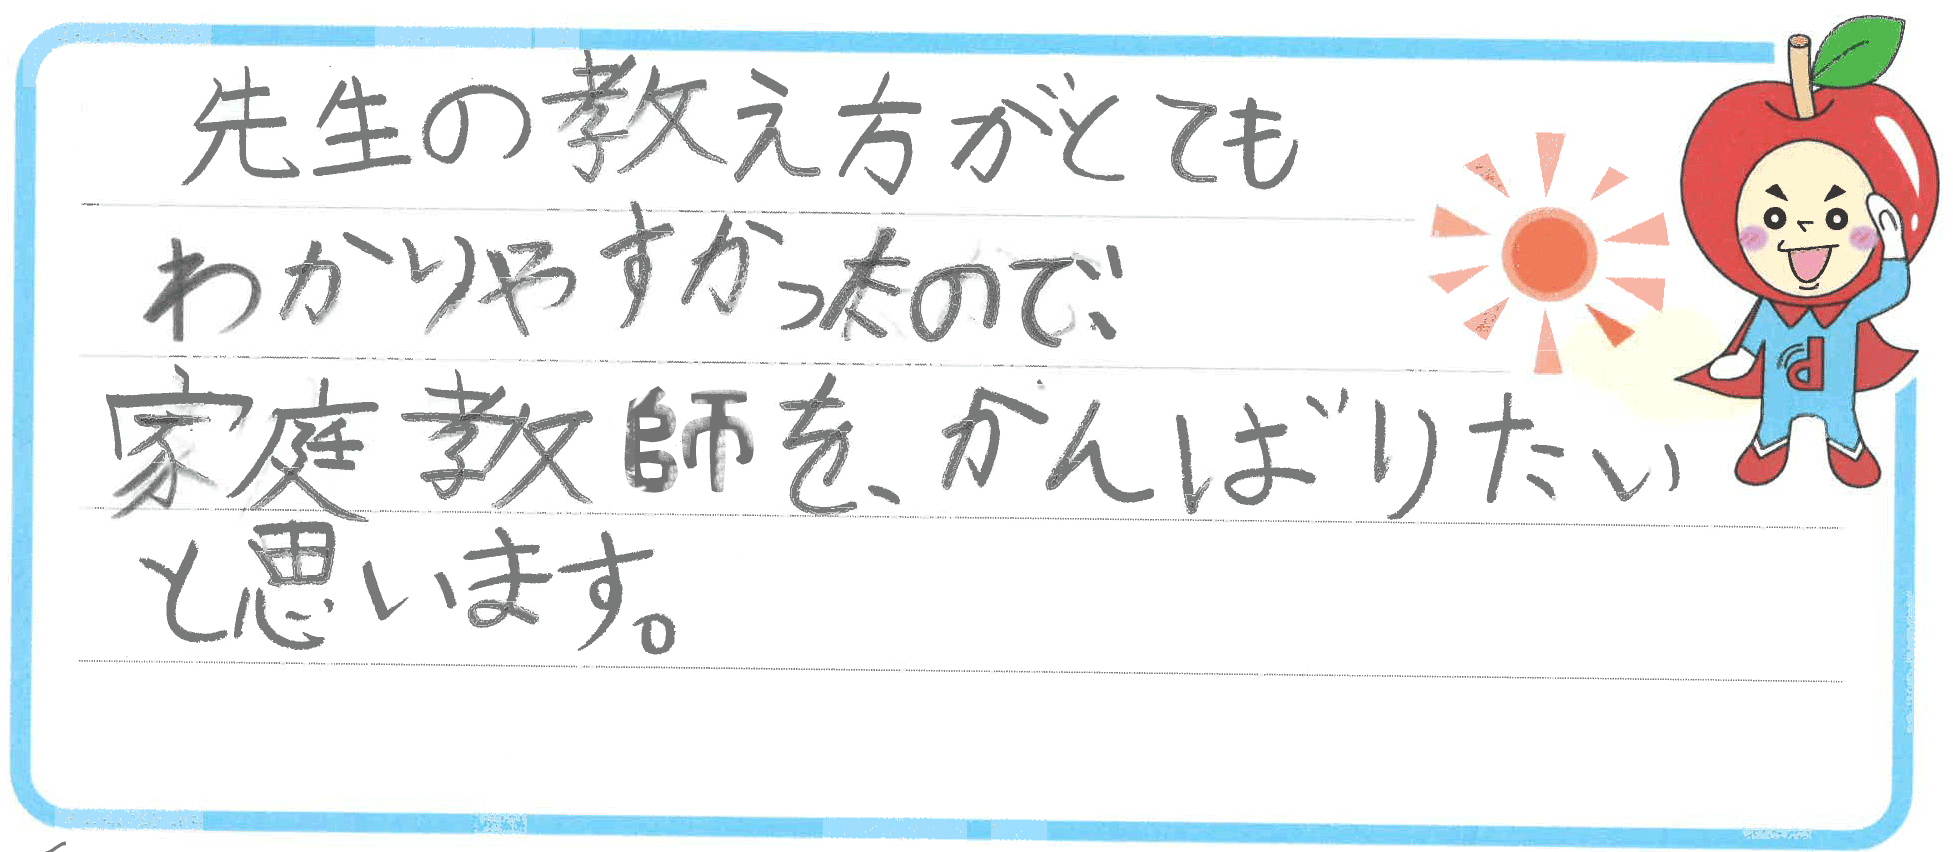 先生の教え方がとても
わかりやすかったので、
家庭教師を、がんばりたい
と思います。